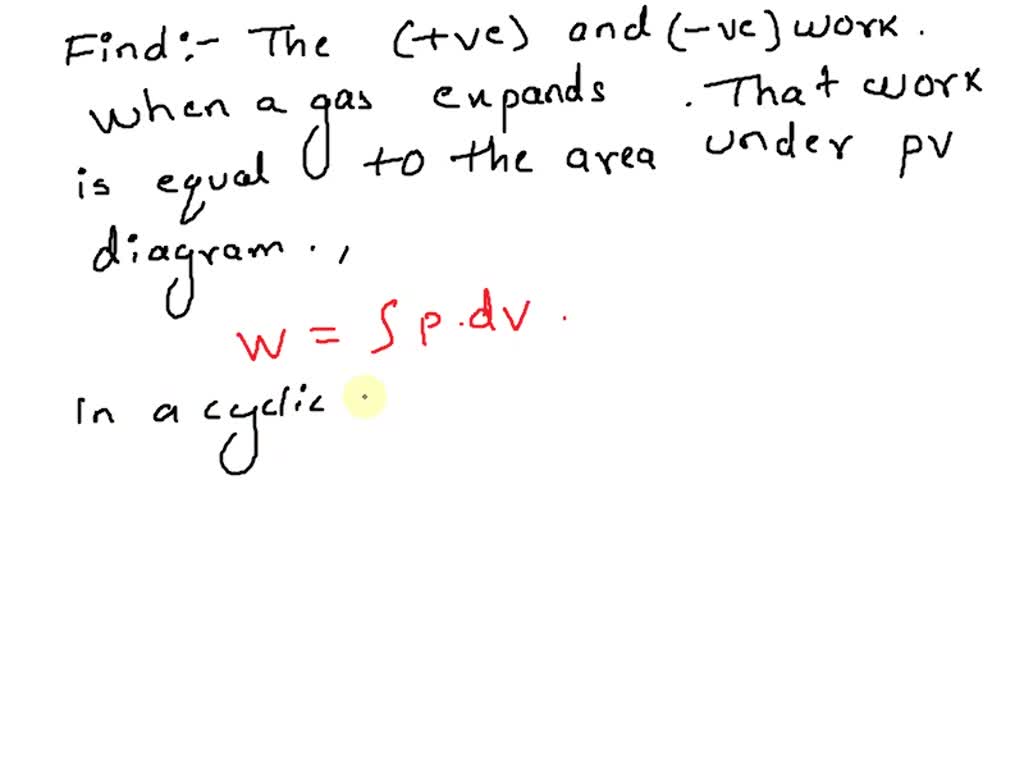 Find:- The (+ve) and (-ve) work.
when a gas expands. That work
is equal to the area under pv
diagram.,
W = ∫ p.dv.
In a cyclic